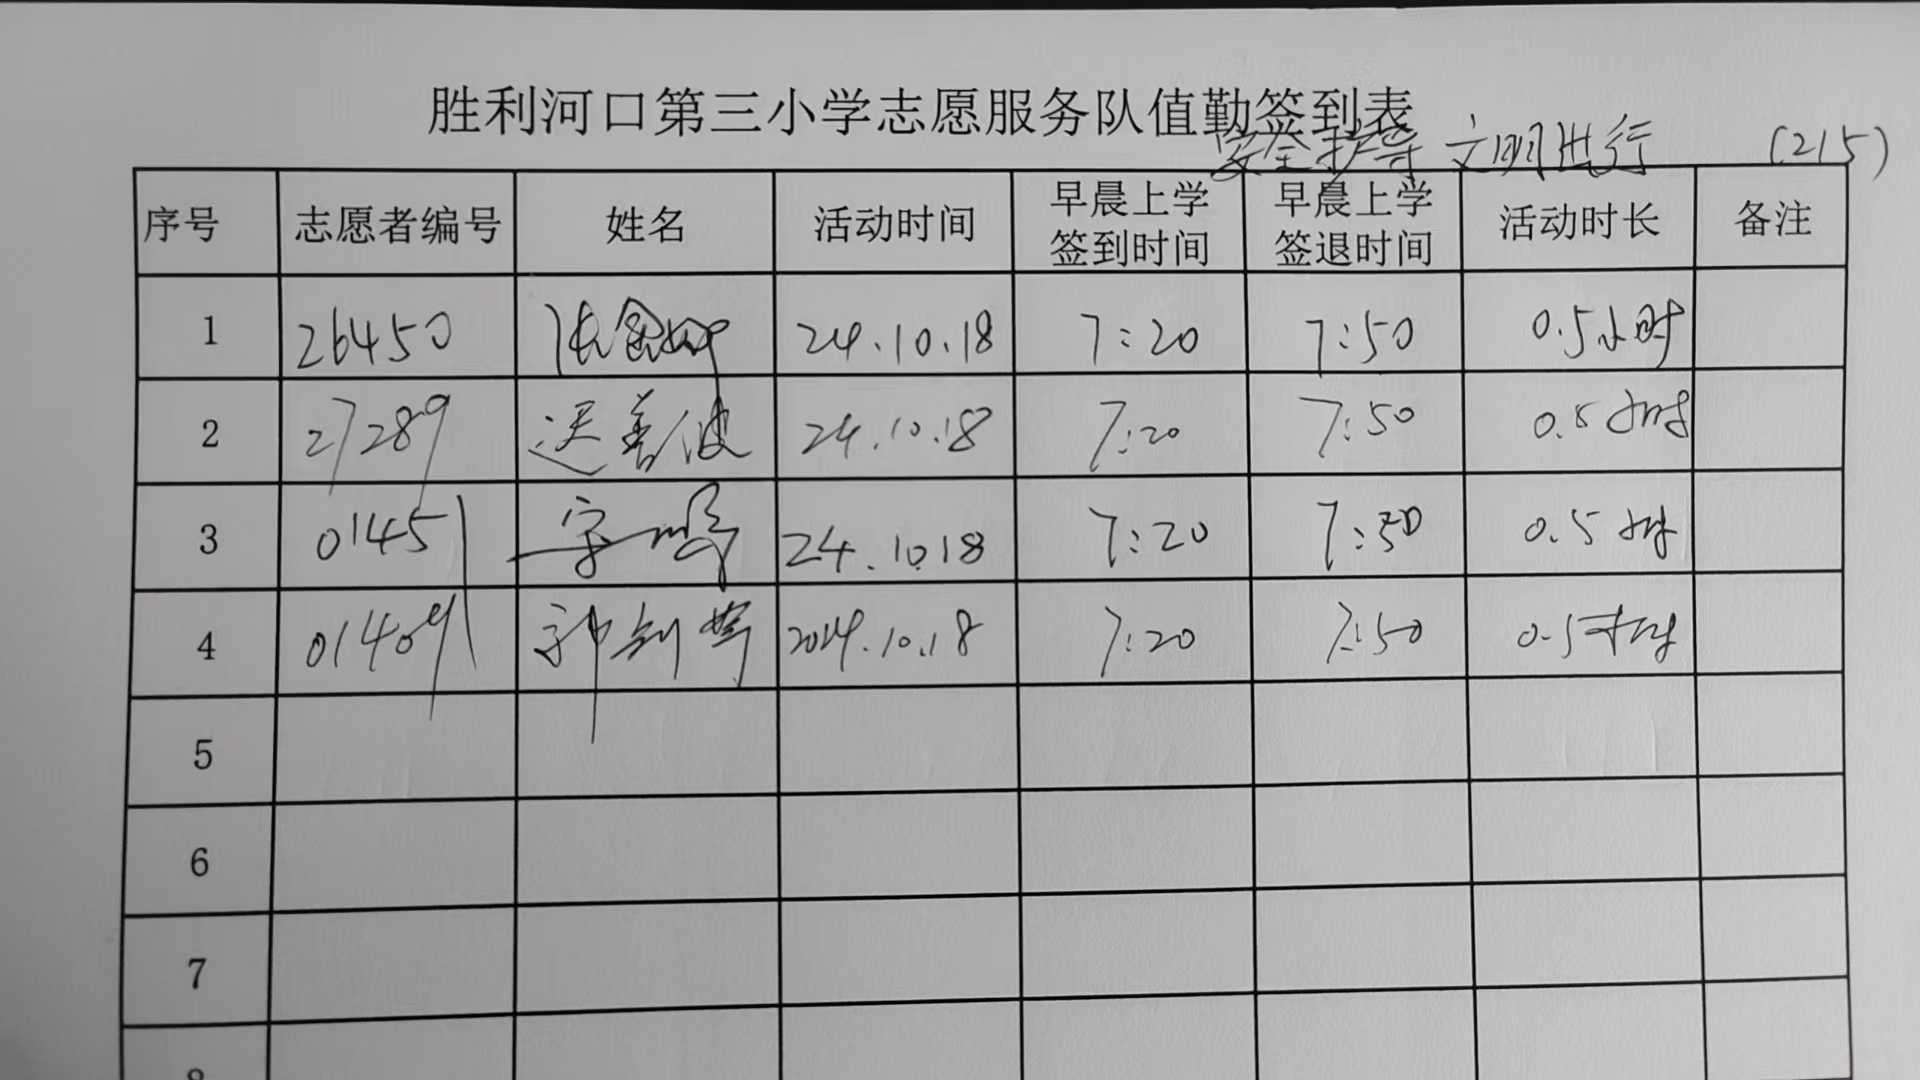 胜利河口第三小学志愿服务队值勤签到表
安全护导 文明进行 (215)
序号 志愿者编号 姓名 活动时间 早晨上学签到时间 早晨上学签退时间 活动时长 备注
1 26450 24.10.18 7:20 7:50 0.5小时
2 27289 24.10.18 7:20 7:50 0.5小时
3 01451 24.10.18 7:20 7:50 0.5小时
4 01409 2024.10.18 7:20 7:50 0.5小时
5
6
7
8